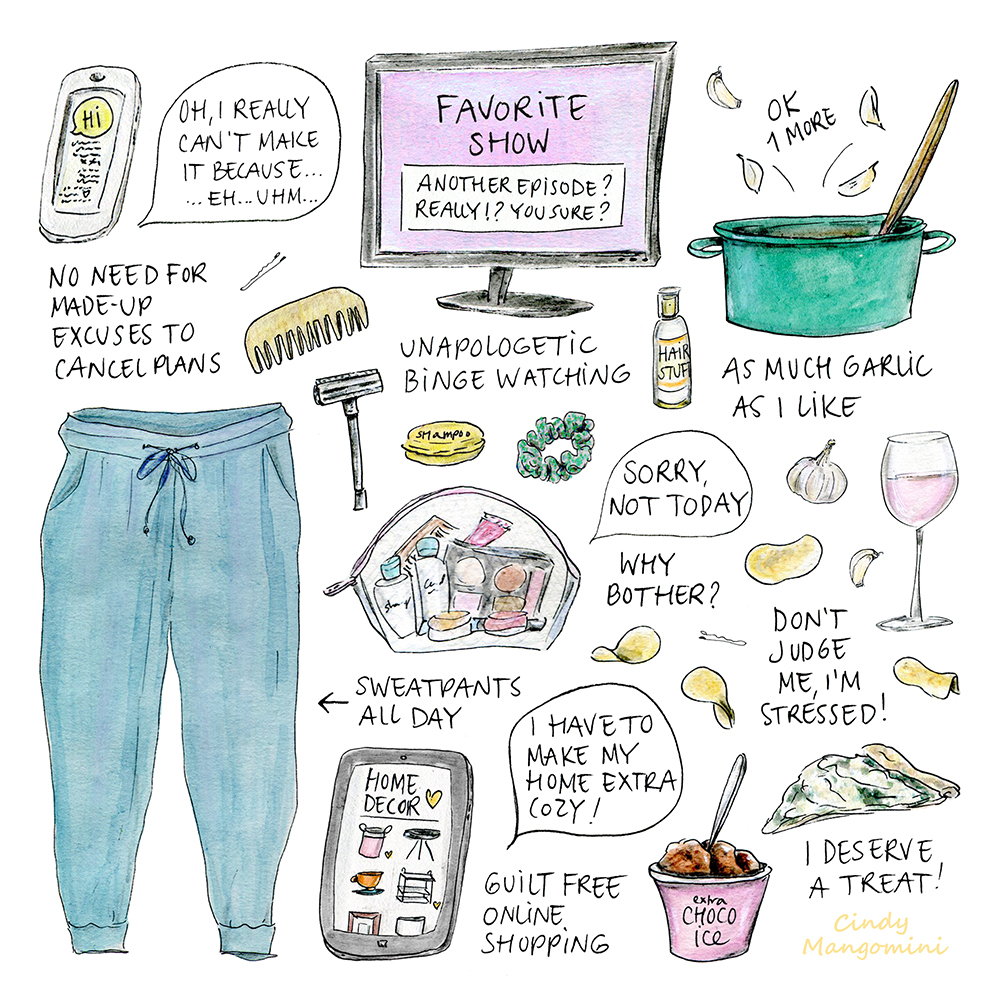 Hi
OH, I REALLY
CAN'T MAKE
IT BECAUSE...
...EH...UHM...
FAVORITE
SHOW
ANOTHER EPISODE?
REALLY!? YOU SURE?
OK
1 MORE
NO NEED FOR
MADE-UP
EXCUSES TO
CANCEL PLANS
UNAPOLOGETIC
BINGE WATCHING
HAIR
STUFF
AS MUCH GARLIC
AS I LIKE
SHAMPOO
SORRY,
NOT TODAY
WHY
BOTHER?
DON'T
JUDGE
ME, I'M
STRESSED!
← SWEATPANTS
ALL DAY
I HAVE TO
MAKE MY
HOME EXTRA
COZY!
HOME
DECOR
GUILT FREE
ONLINE
SHOPPING
extra
CHOCO
ICE
I DESERVE,
A TREAT!
Cindy
Mangomini